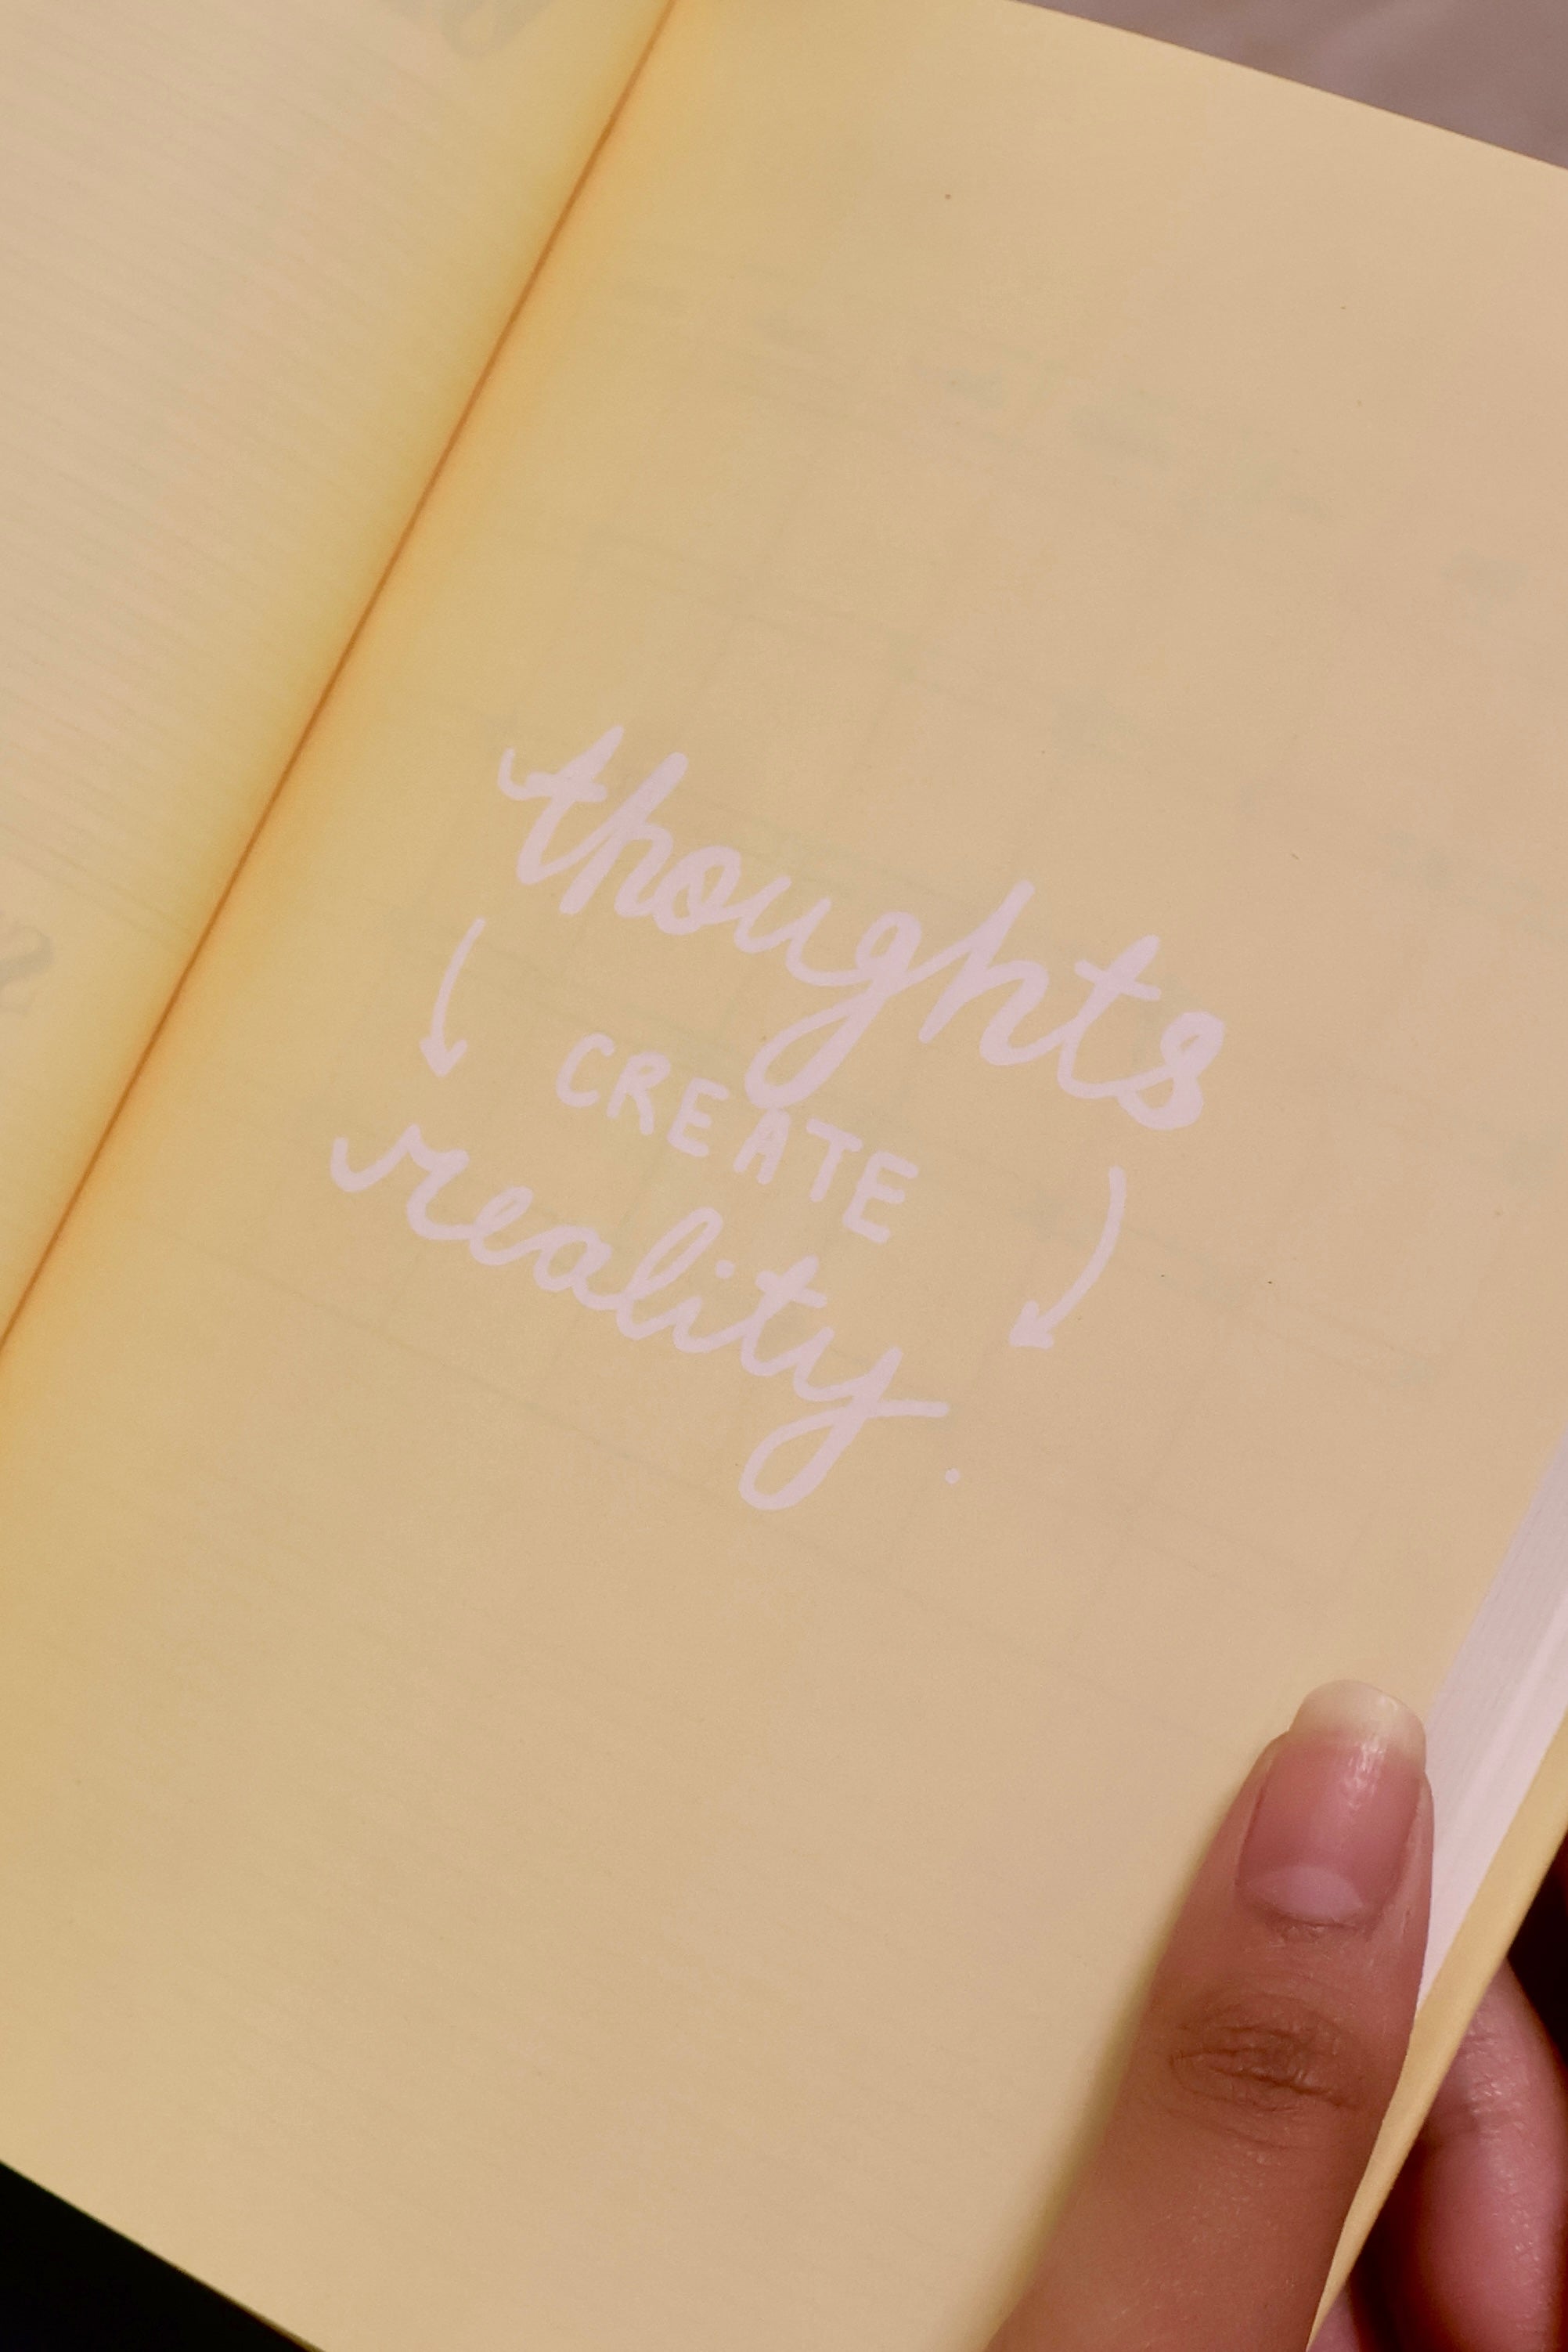 thoughts
CREATE
reality.